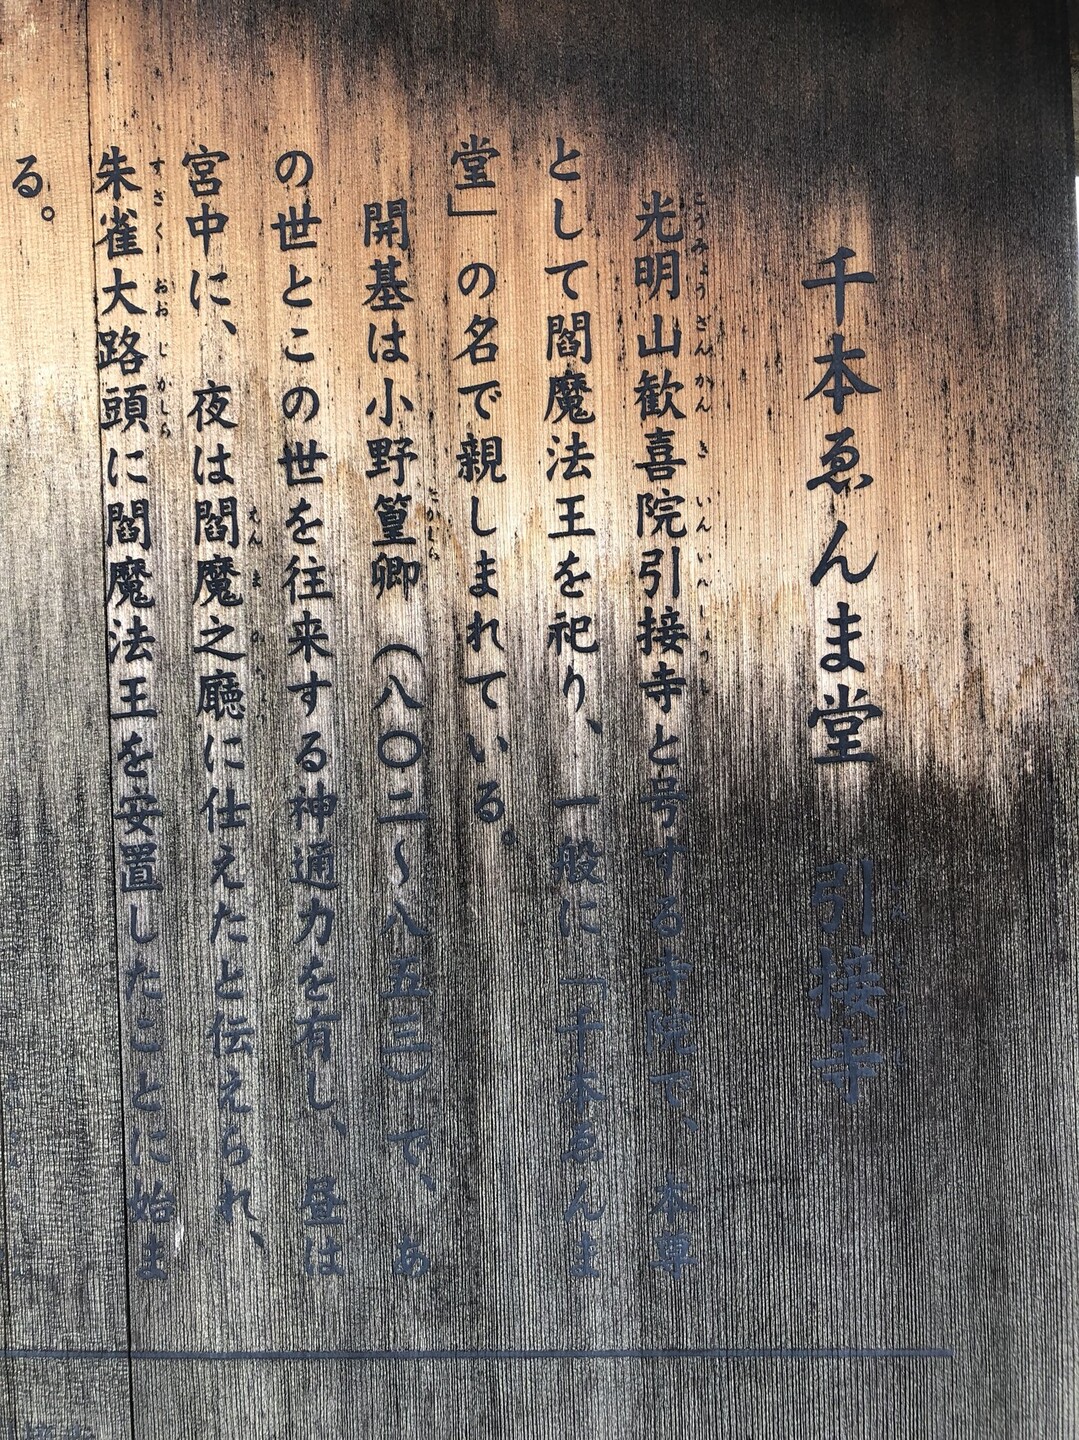 千本ゑんま堂　引接寺
光明山歓喜院引接寺と号する寺院で、本尊
として閻魔法王を祀り、一般に「千本ゑんま
堂」の名で親しまれている。
開基は小野篁卿（八〇二～八五三）で、あ
の世とこの世を往来する神通力を有し、昼は
宮中に、夜は閻魔之廳に仕えたと伝えられ、
朱雀大路頭に閻魔法王を安置したことに始ま
る。